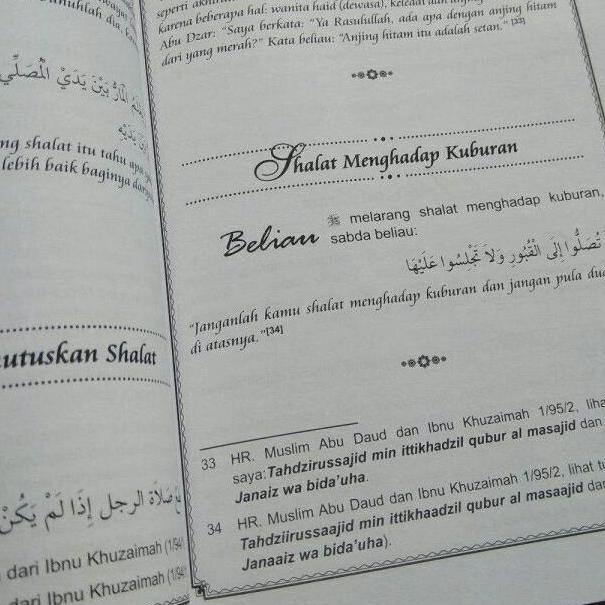 nuhlah dia, ka
بَيْنَ يَدَيْ الْمُصَلِّي
يَدَيْهِ
ng shalat itu tahu apa
lebih baik baginya dari
utuskan Shalat
صَلَاةَ الرجل إِذَا لَمْ يَكُنْ
dari Ibnu Khuzaimah (1/94
dari Ibnu Khuzaimah (1/94
seperti
karena beberapa hal: wanita haid (dewasa), keledai dan anjing hitam
Abu Dzar: "Saya berkata: "Ya Rasulullah, ada apa dengan anjing hitam
dari yang merah?" Kata beliau: "Anjing hitam itu adalah setan." [33]
Shalat Menghadap Kuburan
Beliau ﷺ melarang shalat menghadap kuburan,
sabda beliau:
تُصَلُّوا إِلَى الْقُبُورِ وَلاَ تَجْلِسُوا عَلَيْهَا
"Janganlah kamu shalat menghadap kuburan dan jangan pula dud
di atasnya."[34]
33 HR. Muslim Abu Daud dan Ibnu Khuzaimah 1/95/2, liha
saya: Tahdzirussajid min ittikhadzil qubur al masajid dan
Janaiz wa bida'uha.
34 HR. Muslim Abu Daud dan Ibnu Khuzaimah 1/95/2, lihat tu
Tahdziirussaajid min ittikhaadzil qubur al masaajid dan
Janaaiz wa bida'uha).